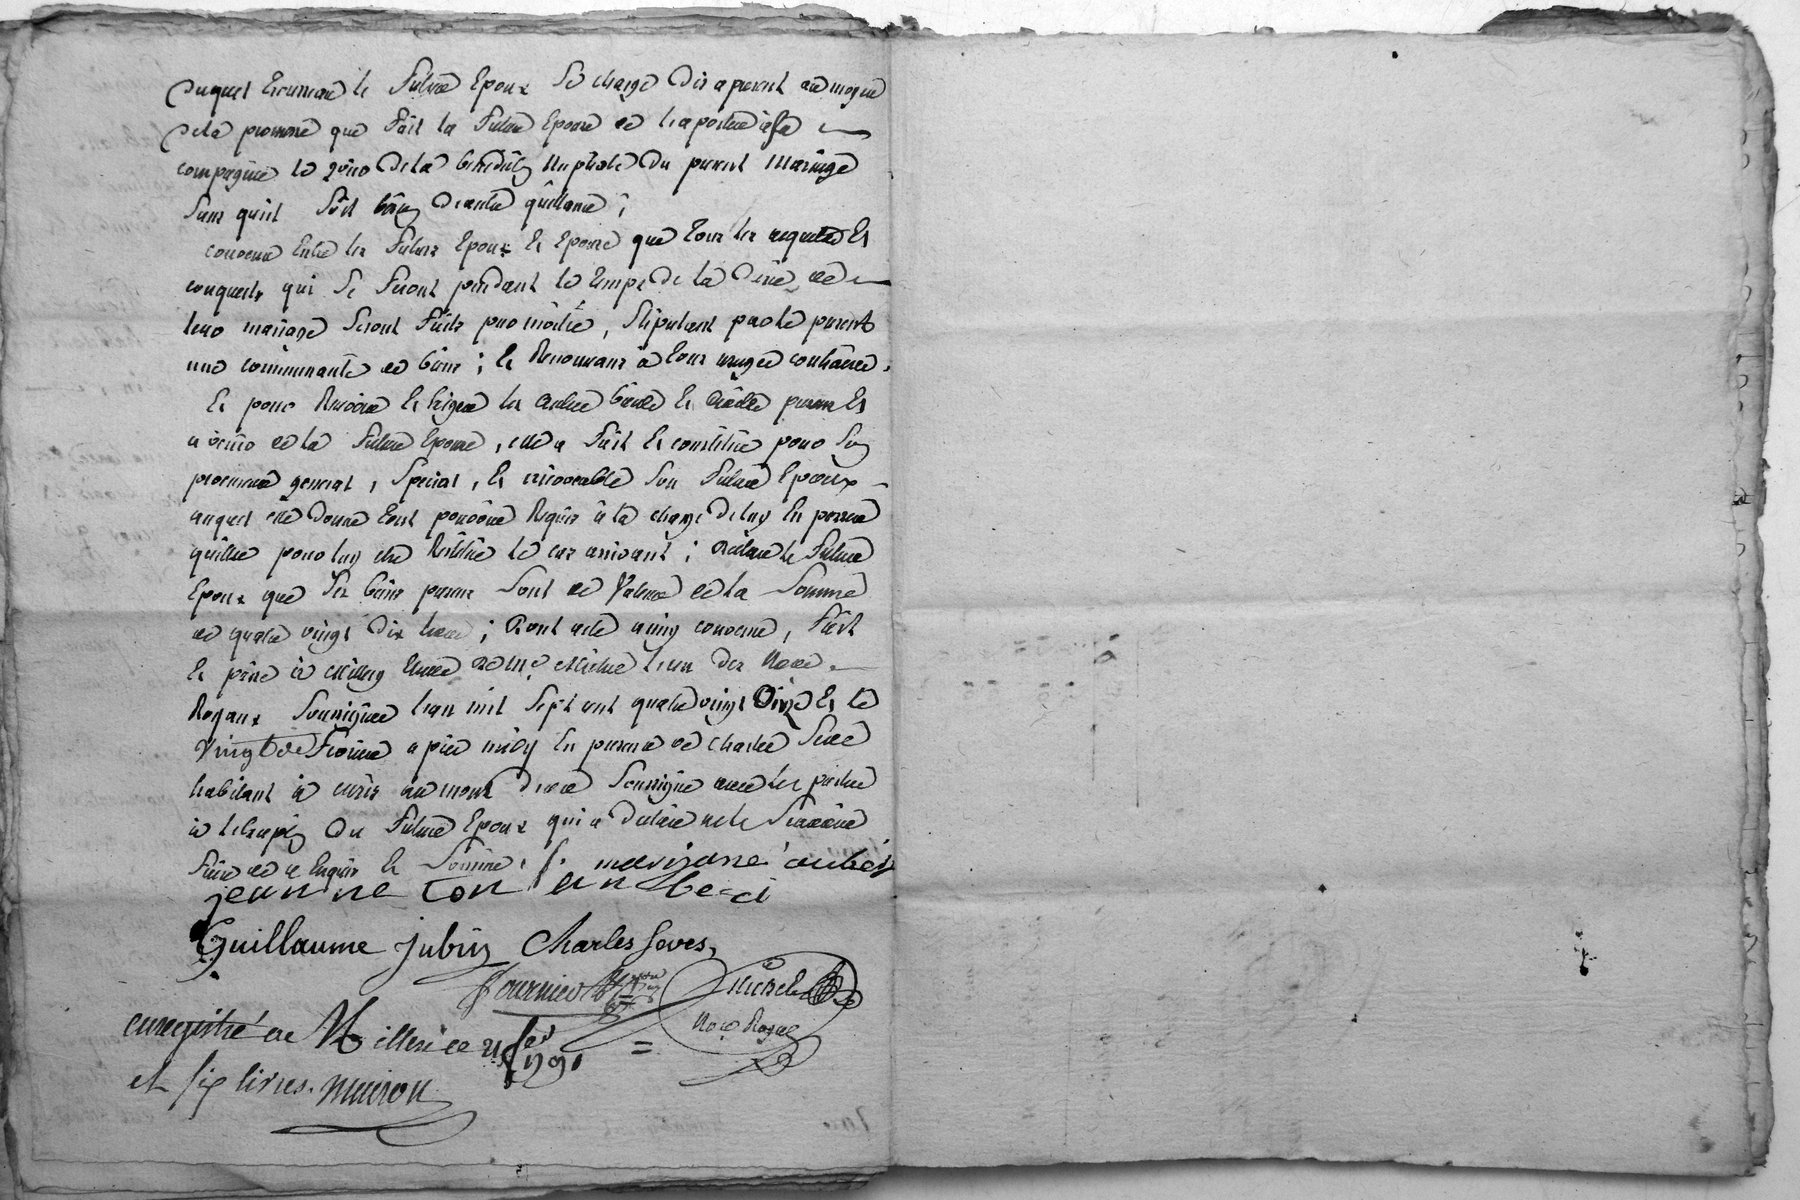 Duquel trousseau le futur Epoux Se charge Dis a present au moyen
De la promesse que fait la future Epouse de l'apporter à sa
compagnie le jour De la benediction Nuptiale Du present Mariage
sans qu'il soit besoin D'autre quittance ;
convenu Entre les futurs Epoux Et Epouse que Tous les acquets Et
conquets qui Se feront pendant le temps De la Durée de
leur mariage Seront faits par moitié, Stipulant par le present
une communauté de biens ; Et Renonçant à Tous usages contraires.
Et pour Recevoir Et Exiger les autres biens Et Droits presents Et
a venir de la future Epouse, elle a fait Et constitué pour Son
procureur general, Special, Et irrevocable Son futur Epoux
auquel elle Donne Tout pouvoir Requis à la charge De luy En passer
quittance pour luy etre Restitué le cas arrivant ; Declare le futur
Epoux que Ses biens presents Sont de Valeur de la Somme
de quatre vingt Dix livres ; Dont acte ainsy convenu, fait
Et passé à Millery Etude de Me. Michel l'un Des Notaires
Royaux Soussignés l'an mil Sept cent quatre vingt Onze Et le
Vingt de Fevrier apres midy En presence de Charles Seve
habitant à curis au mont d'or Soussigné avec les parties
à l'exception Du futur Epoux qui a Declaré ne le Scavoir
faire de ce Enquis Et Sommé.
jeanne
Guillaume jubin Charles seves,
fournier Michel
Nore Royal
enregistré a Milleri ce 21 fer 1791
et six livres.